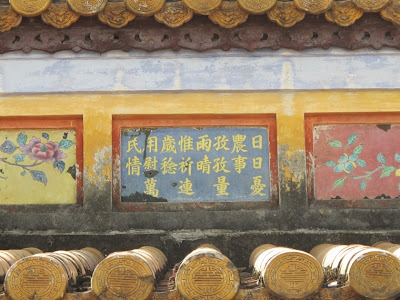 日日憂
農事
孜孜量
雨晴
惟祈連
歲稔
用慰萬
民情